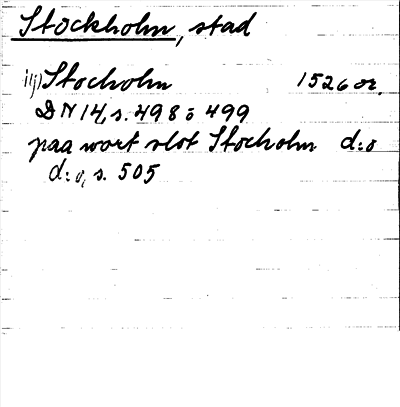 Stockholm, stad
iij) Stocholm 1526 or.
DN 14, s. 498 o 499
paa wort slot Stocholm d:o
d:o, s. 505